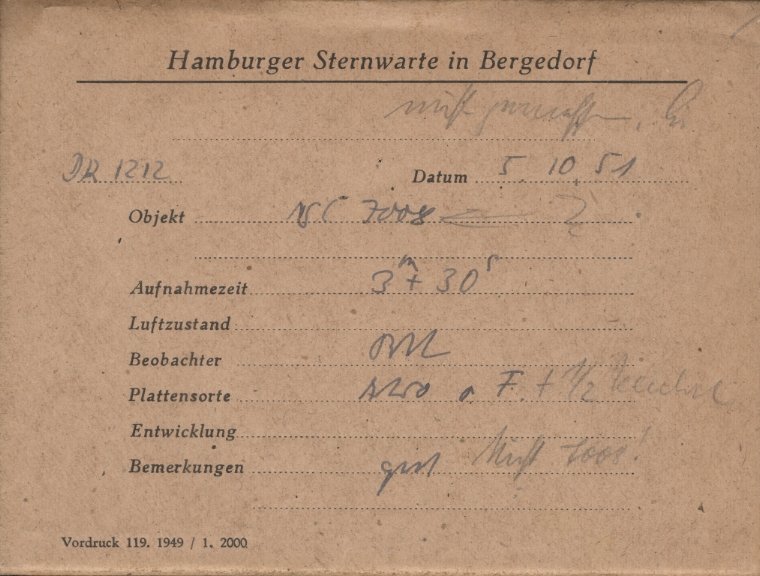 Hamburger Sternwarte in Bergedorf
DR 1212 Datum 5. 10. 51
Objekt 7008
Aufnahmezeit 3m + 30s
Luftzustand
Beobachter
Plattensorte F. + 1/2
Entwicklung
Bemerkungen gut Nicht 7008!
Vordruck 119. 1949 / 1. 2000